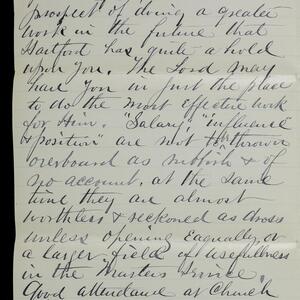 prospect of doing a greater
work in the future that
Hartford has quite a hold
upon you. The Lord may
have you in just the place
to do the most effective work
for Him. "Salary," "influence
& position" are not to thrown
overboard as rubbish & of
no account, at the same
time they are almost
worthless & reckoned as dross
unless opening equally or
a larger field of usefulness
in the Masters service.
Good attendance at Church